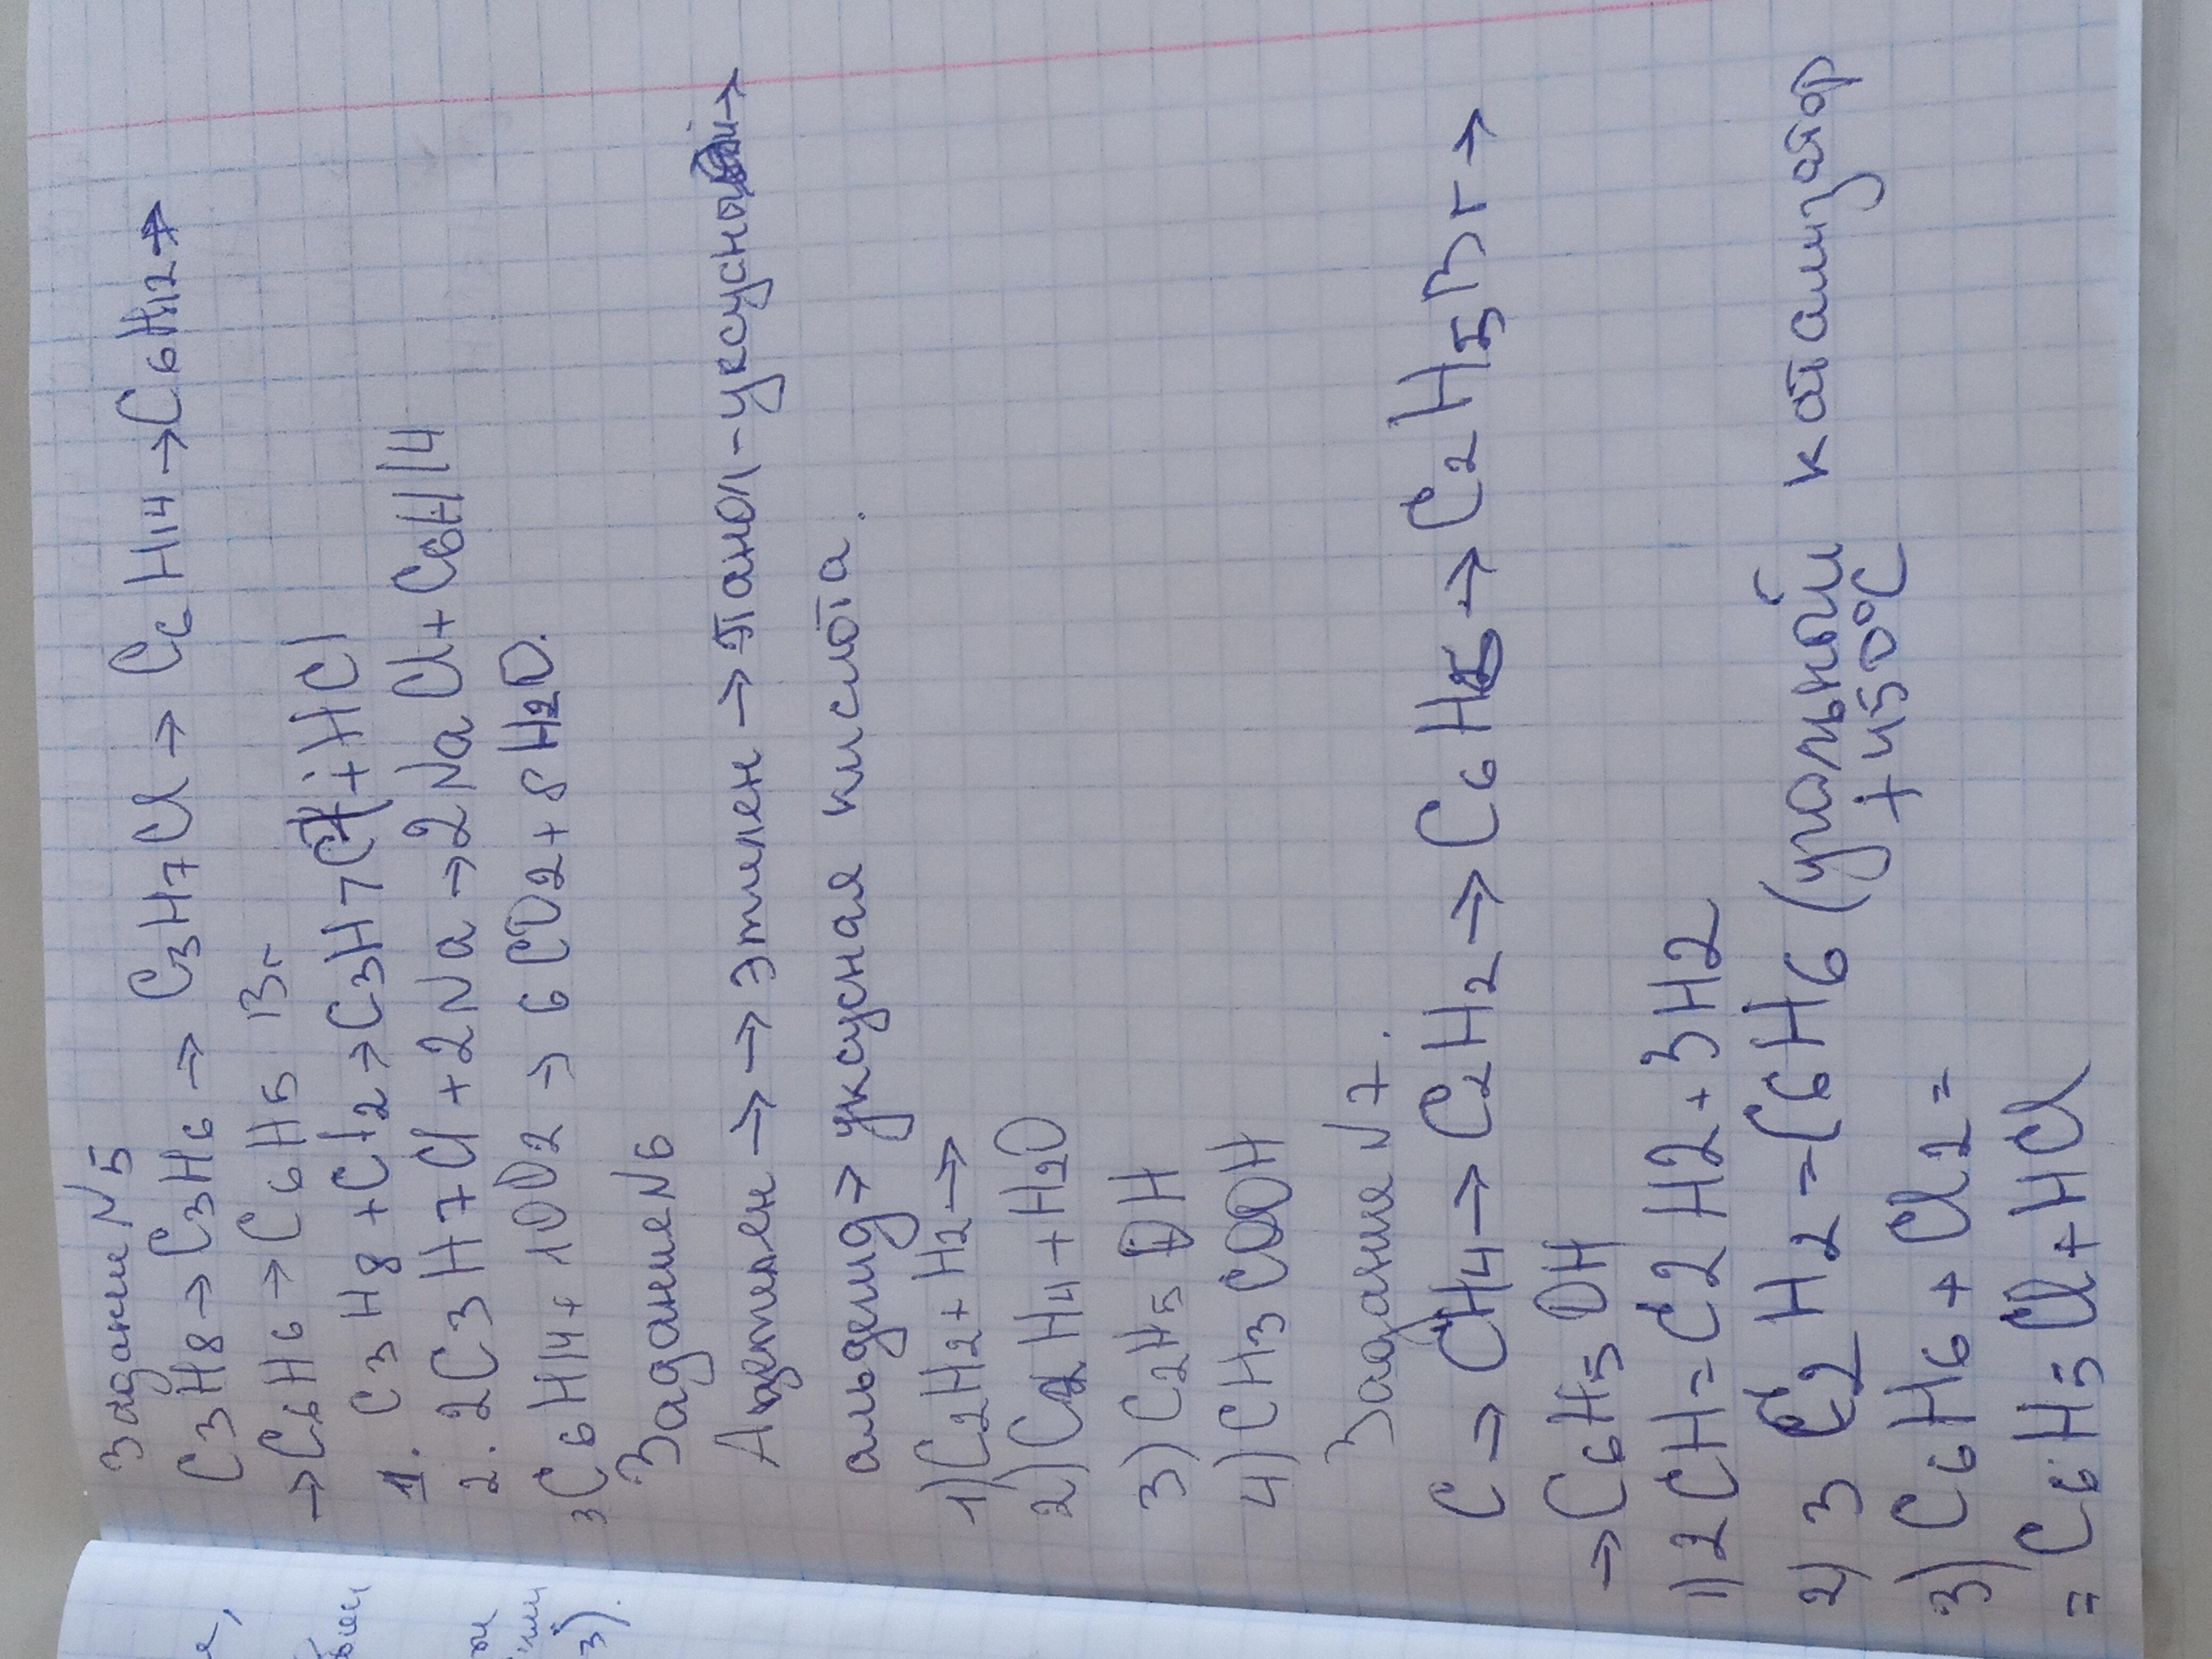 Задание N5
C3H8→C3H6→C3H7Cl→C6H14→C6H12→
→C6H6→C6H5Br
1. C3H8+Cl2→C3H7Cl+HCl
2. 2C3H7Cl+2Na→2NaCl+C6H14
3 C6H14+10O2→6CO2+8H2O.
Задание N6
Ацетилен→→этилен→этанол-уксусный→
альдегид→уксусная кислота.
1) C2H2+H2→
2) C2H4+H2O
3) C2H5OH
4) CH3COOH
Задание N7.
C→CH4→C2H2→C6H6→C2H5Br→
→C6H5OH
1) 2CH=C2H2+3H2
2) 3C2H2=C6H6 (угольный катализатор
+450°C
3) C6H6+Cl2=
=C6H5Cl+HCl
3).